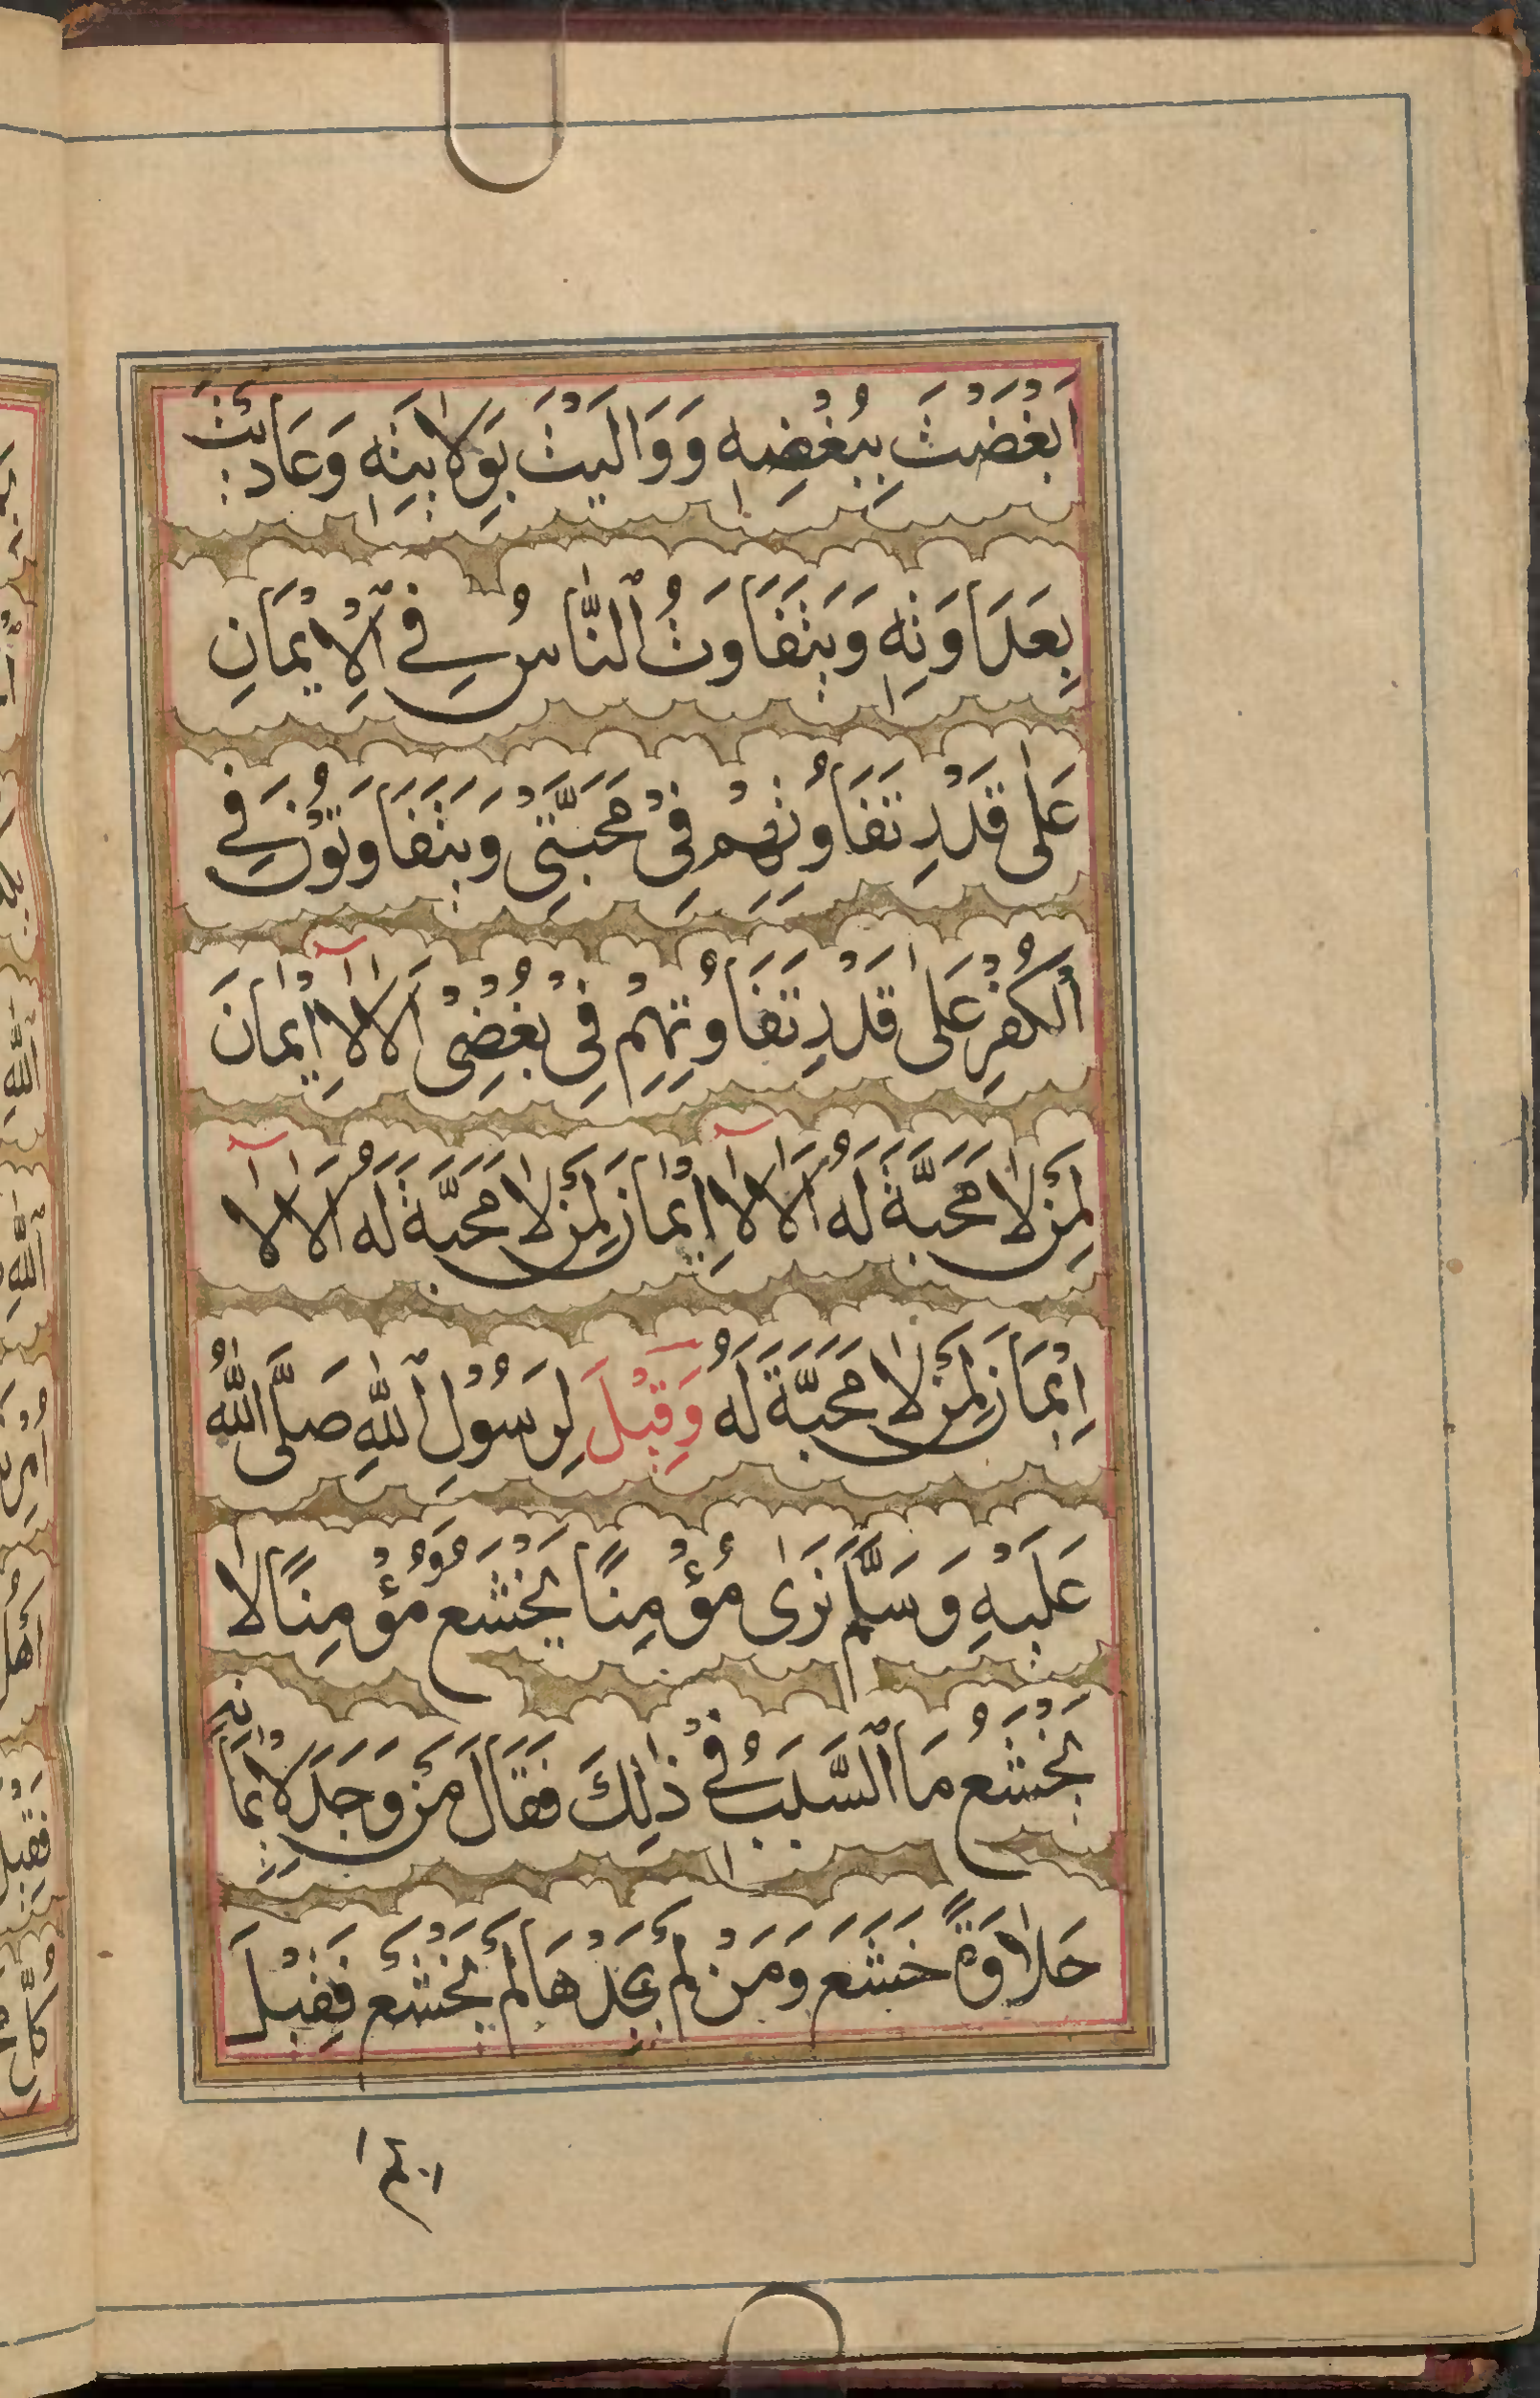 اَبْغَضْتَ بِبُغْضِهٖ وَوَالَيْتَ بِوَلَايَتِهٖ وَعَادَيْتَ
بِعَدَاوَتِهٖ وَيَتَفَاوَتُ ٱلنَّاسُ فِي ٱلْاِيْمَانِ
عَلٰى قَدَرِ تَفَاوُتِهِمْ فِيْ مَحَبَّتِيْ وَيَتَفَاوَتُوْنَ فِي
الْكُفْرِ عَلٰى قَدْرِ تَفَاوُتِهِمْ فِيْ بُغْضِيْ اَلَا لَآ اِيْمَانَ
لِمَنْ لَا مَحَبَّةَ لَهُ اَلَا لَآ اِيْمَانَ لِمَنْ لَا مَحَبَّةَ لَهُ اَلَا لَآ
اِيْمَانَ لِمَنْ لَا مَحَبَّةَ لَهُ وَقِيْلَ لِرَسُوْلِ ٱللّٰهِ صَلَّى اللّٰهُ
عَلَيْهِ وَسَلَّمَ نَرٰى مُؤْمِنًا يَخْشَعُ وَمُؤْمِنًا لَا
يَخْشَعُ مَا ٱلسَّبَبُ فِيْ ذٰلِكَ فَقَالَ مَنْ وَجَدَ لِاِيْمَانِهٖ
حَلَاوَةً خَشَعَ وَمَنْ لَمْ يَجِدْهَا لَمْ يَخْشَعْ فَقِيْلَ